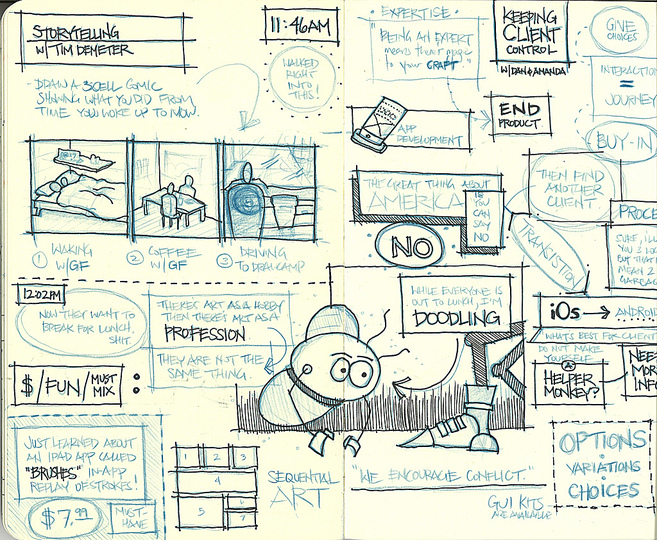 STORYTELLING
W/ TIM DEMETER
11:46AM
WALKED
RIGHT
INTO
THIS!
- DRAW A 3CELL COMIC
SHOWING WHAT YOU DID FROM
TIME YOU WOKE UP TO NOW.
① WAKING
W/GF
② COFFEE
W/GF
③ DRIVING
TO DRAWCAMP
12:02PM
NOW THEY WANT TO
BREAK FOR LUNCH.
SHIT.
THERE'S ART AS A HOBBY
THEN THERE'S ART AS A
PROFESSION
THEY ARE NOT THE
SAME THING.
$/FUN/MUST
MIX
JUST LEARNED ABOUT
AN IPAD APP CALLED
"BRUSHES" IN-APP
REPLAY OF STROKES!
$7.99
MUST-
HAVE
1 2 3
4
5 6
7
SEQUENTIAL
ART
· EXPERTISE ·
"BEING AN EXPERT
means their magic
to your CRAFT"
KEEPING
CLIENT
CONTROL
W/ DAN & AMANDA
GIVE
CHOICES
INTERACTION
=
JOURNEY
BUY-IN
END
PRODUCT
APP
DEVELOPMENT
THE GREAT THING ABOUT
AMERICA IS
YOU
CAN
SAY
NO
NO
THEN FIND
ANOTHER
CLIENT.
TRANSITION
PROCE
SURE, I
BUT THAT
MEAN
iOs → ANDROID
WHAT'S BEST FOR CLIENT
DO NOT MAKE
YOURSELF
A
HELPER
MONKEY?
NEED
MOR
INFO
WHILE EVERYONE IS
OUT TO LUNCH, I'M
DOODLING
"WE ENCOURAGE CONFLICT."
GUI KITS
ARE AVAILABLE
OPTIONS
·
VARIATIONS
·
CHOICES